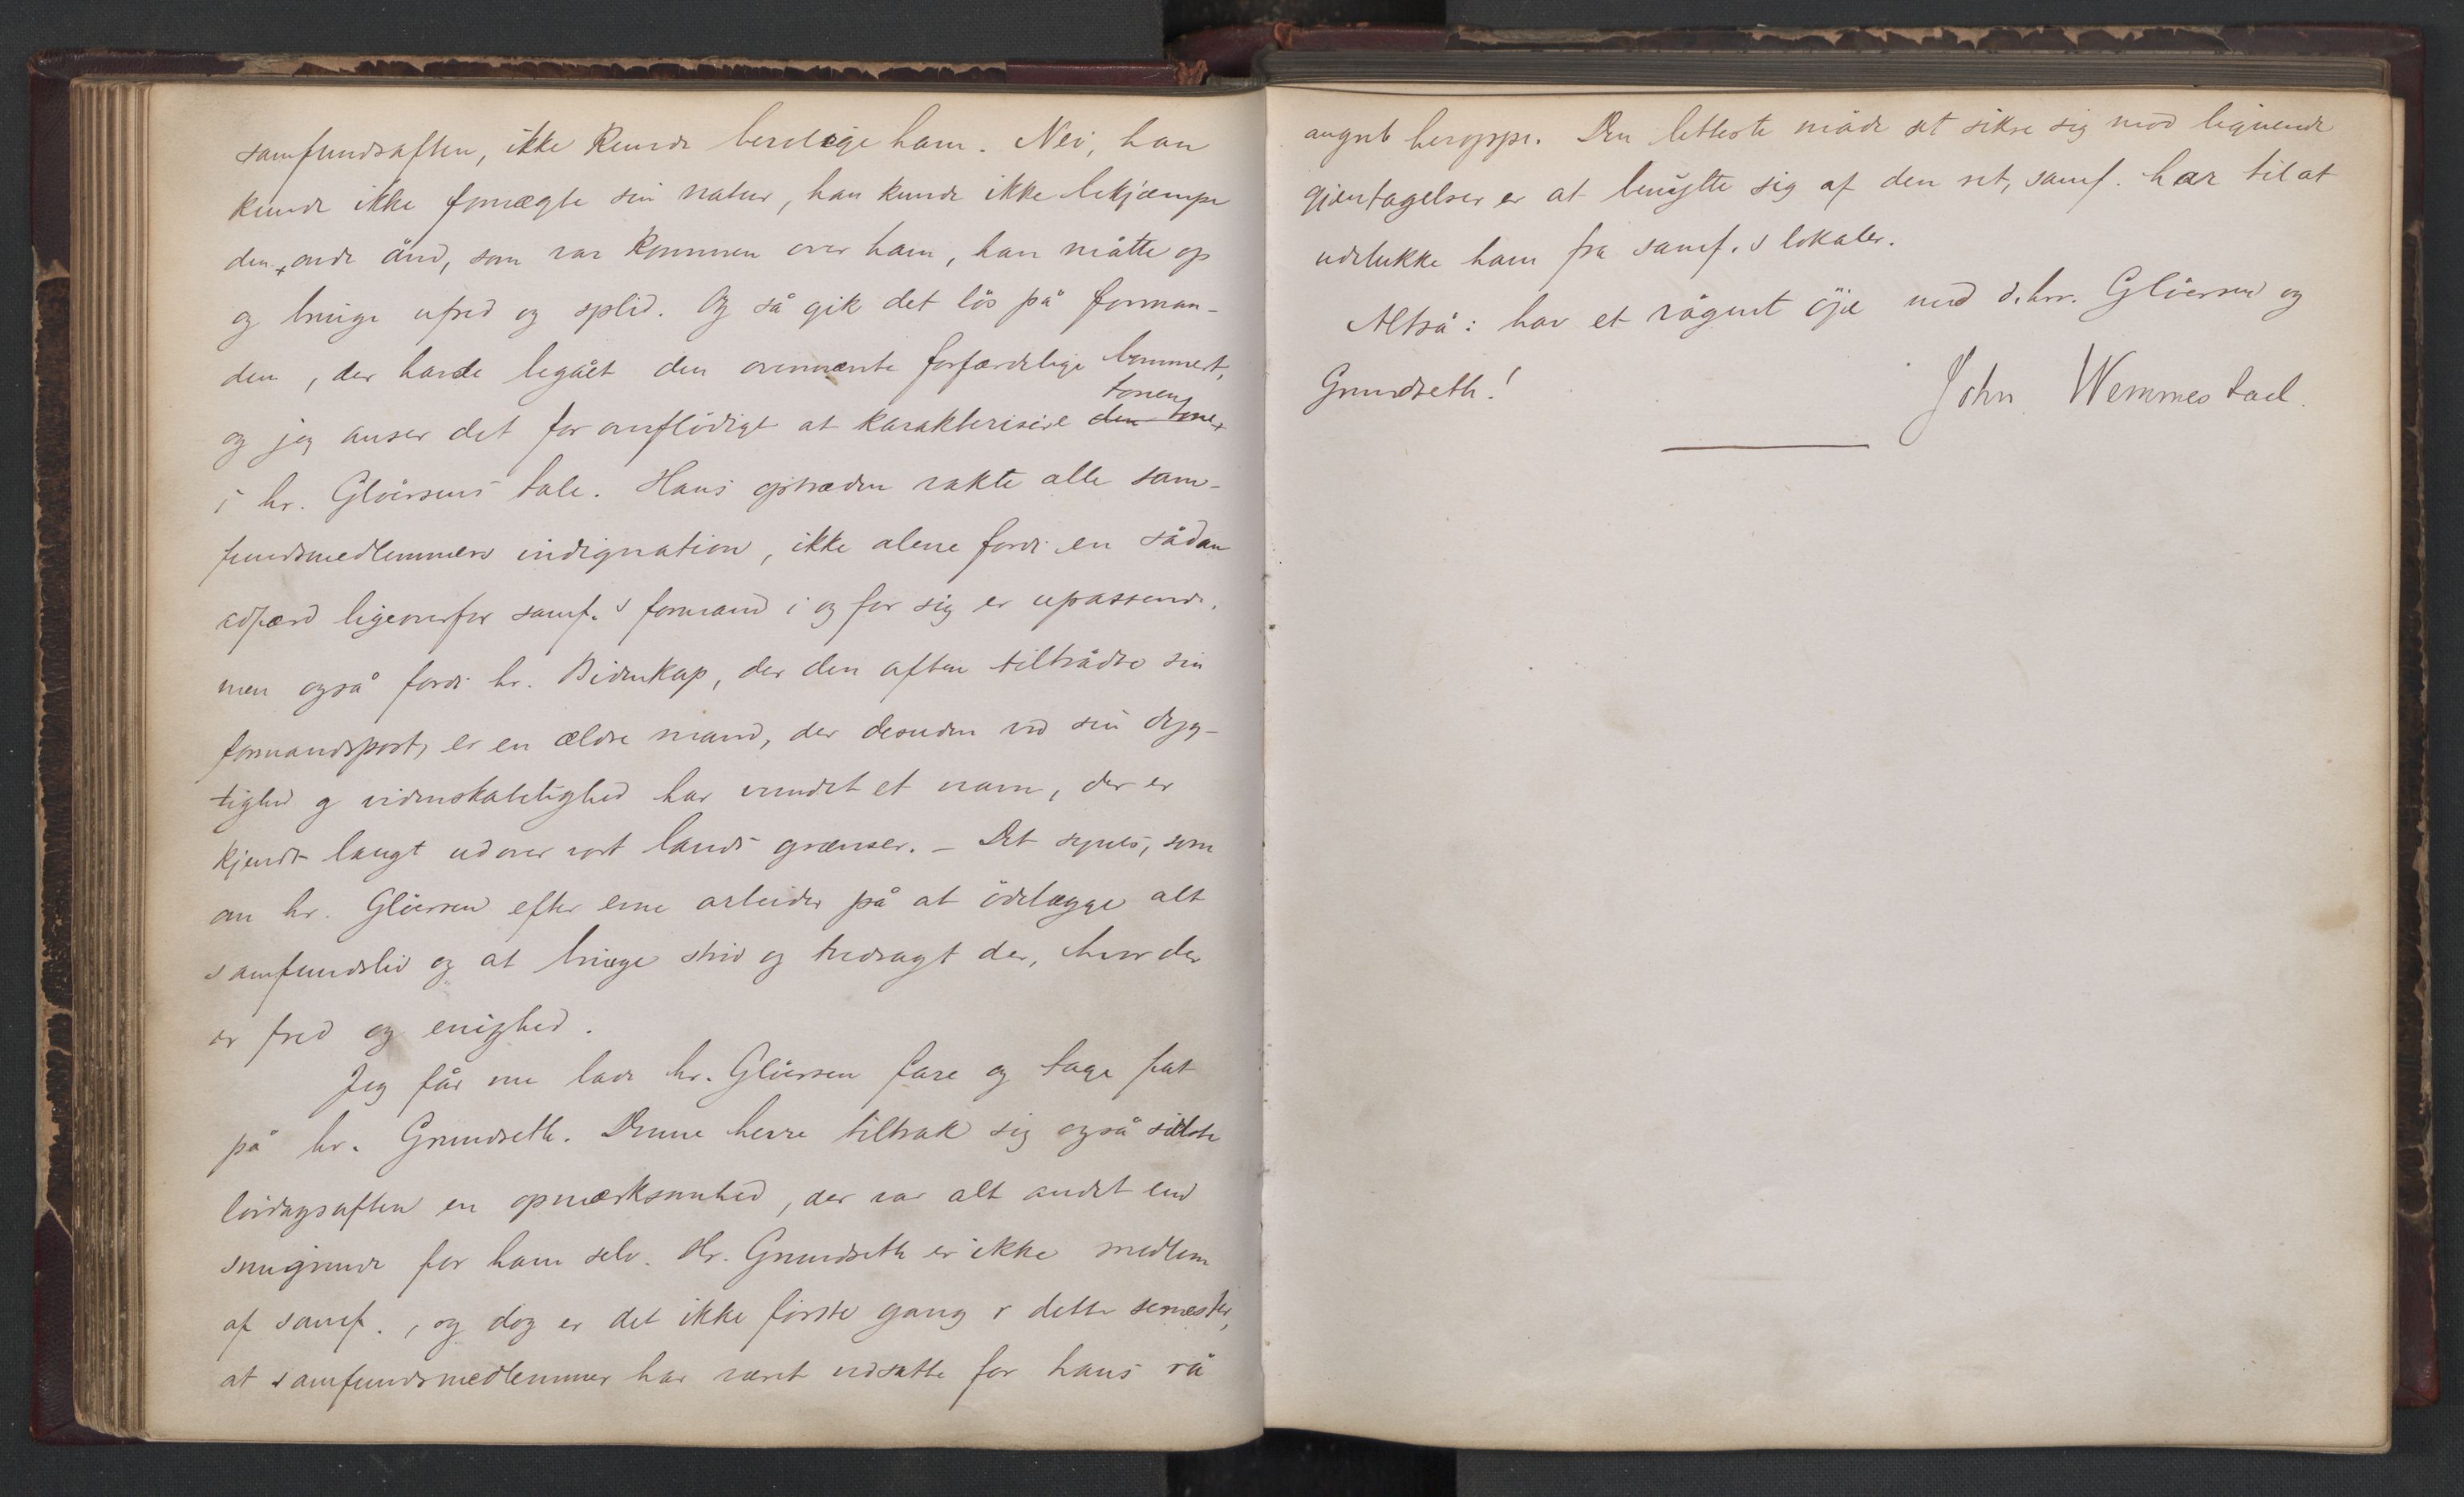 samfundsaften, ikke kunde berolige ham. Nei, han
kunde ikke fornægte sin natur, han kunde ikke bekjæmpe
den onde ånd, som var kommen over ham, han måtte op
og bringe ufred og splid. Og så gik det lös på forman-
den, der havde begået den ovennævnte forfærdelige bommert,
tonen
og jeg anser det for overflödigt at karakterisere den tone
i hr. Glöersens tale. Hans optræden vakte alle sam-
fundsmedlemmers indignation, ikke alene fordi en sådan
adfærd ligeoverfor samf.s formand i og for sig er upassende,
men også fordi hr. Bidenkap, der den aften tiltrådte sin
formandspost, er en ældre mand, der desuden ved sin dyg-
tighed og videnskabelighed har vundet et navn, der er
kjendt langt udover vort lands grænser. – Det synes, som
om hr. Glöersen efter evne arbeider på at ödelægge alt
samfundsliv og at bringe strid og tvedragt der, hvor der
er fred og enighed.
Jeg får nu lade hr. Glöersen fare og tage fat
på hr. Grundseth. Denne herre tiltrak sig også sidste
lördagsaften en opmærksomhed, der var alt andet end
smigrende for ham selv. Hr. Grundseth er ikke medlem
af samf., og dog er det ikke förste gang i dette semester,
at samfundsmedlemmer har været udsatte for hans rå
angreb heroppe. Den letteste måde at sikre sig mod lignende
gjentagelser er at benytte sig af den ret, samf. har til at
udelukke ham fra samf.s lokaler.
Altså: hav et vågent öje med d.hrr. Glöersen og
Grundseth!
John Wemmestad.